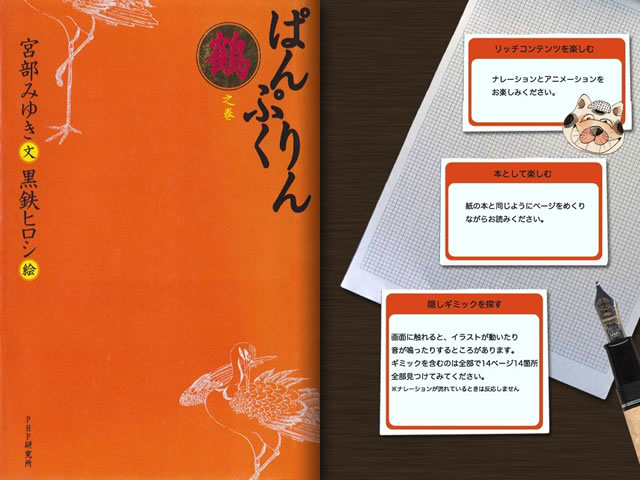 ぱんぷくりん
鶴
之巻
宮部みゆき 文 黒鉄ヒロシ 絵
PHP研究所
リッチコンテンツを楽しむ
ナレーションとアニメーションを
お楽しみください。
本として楽しむ
紙の本と同じようにページをめくり
ながらお読みください。
隠しギミックを探す
画面に触れると、イラストが動いたり
音が鳴ったりするところがあります。
ギミックを含むのは全部で14ページ14箇所
全部見つけてみてください。
※ナレーションが流れているときは反応しません